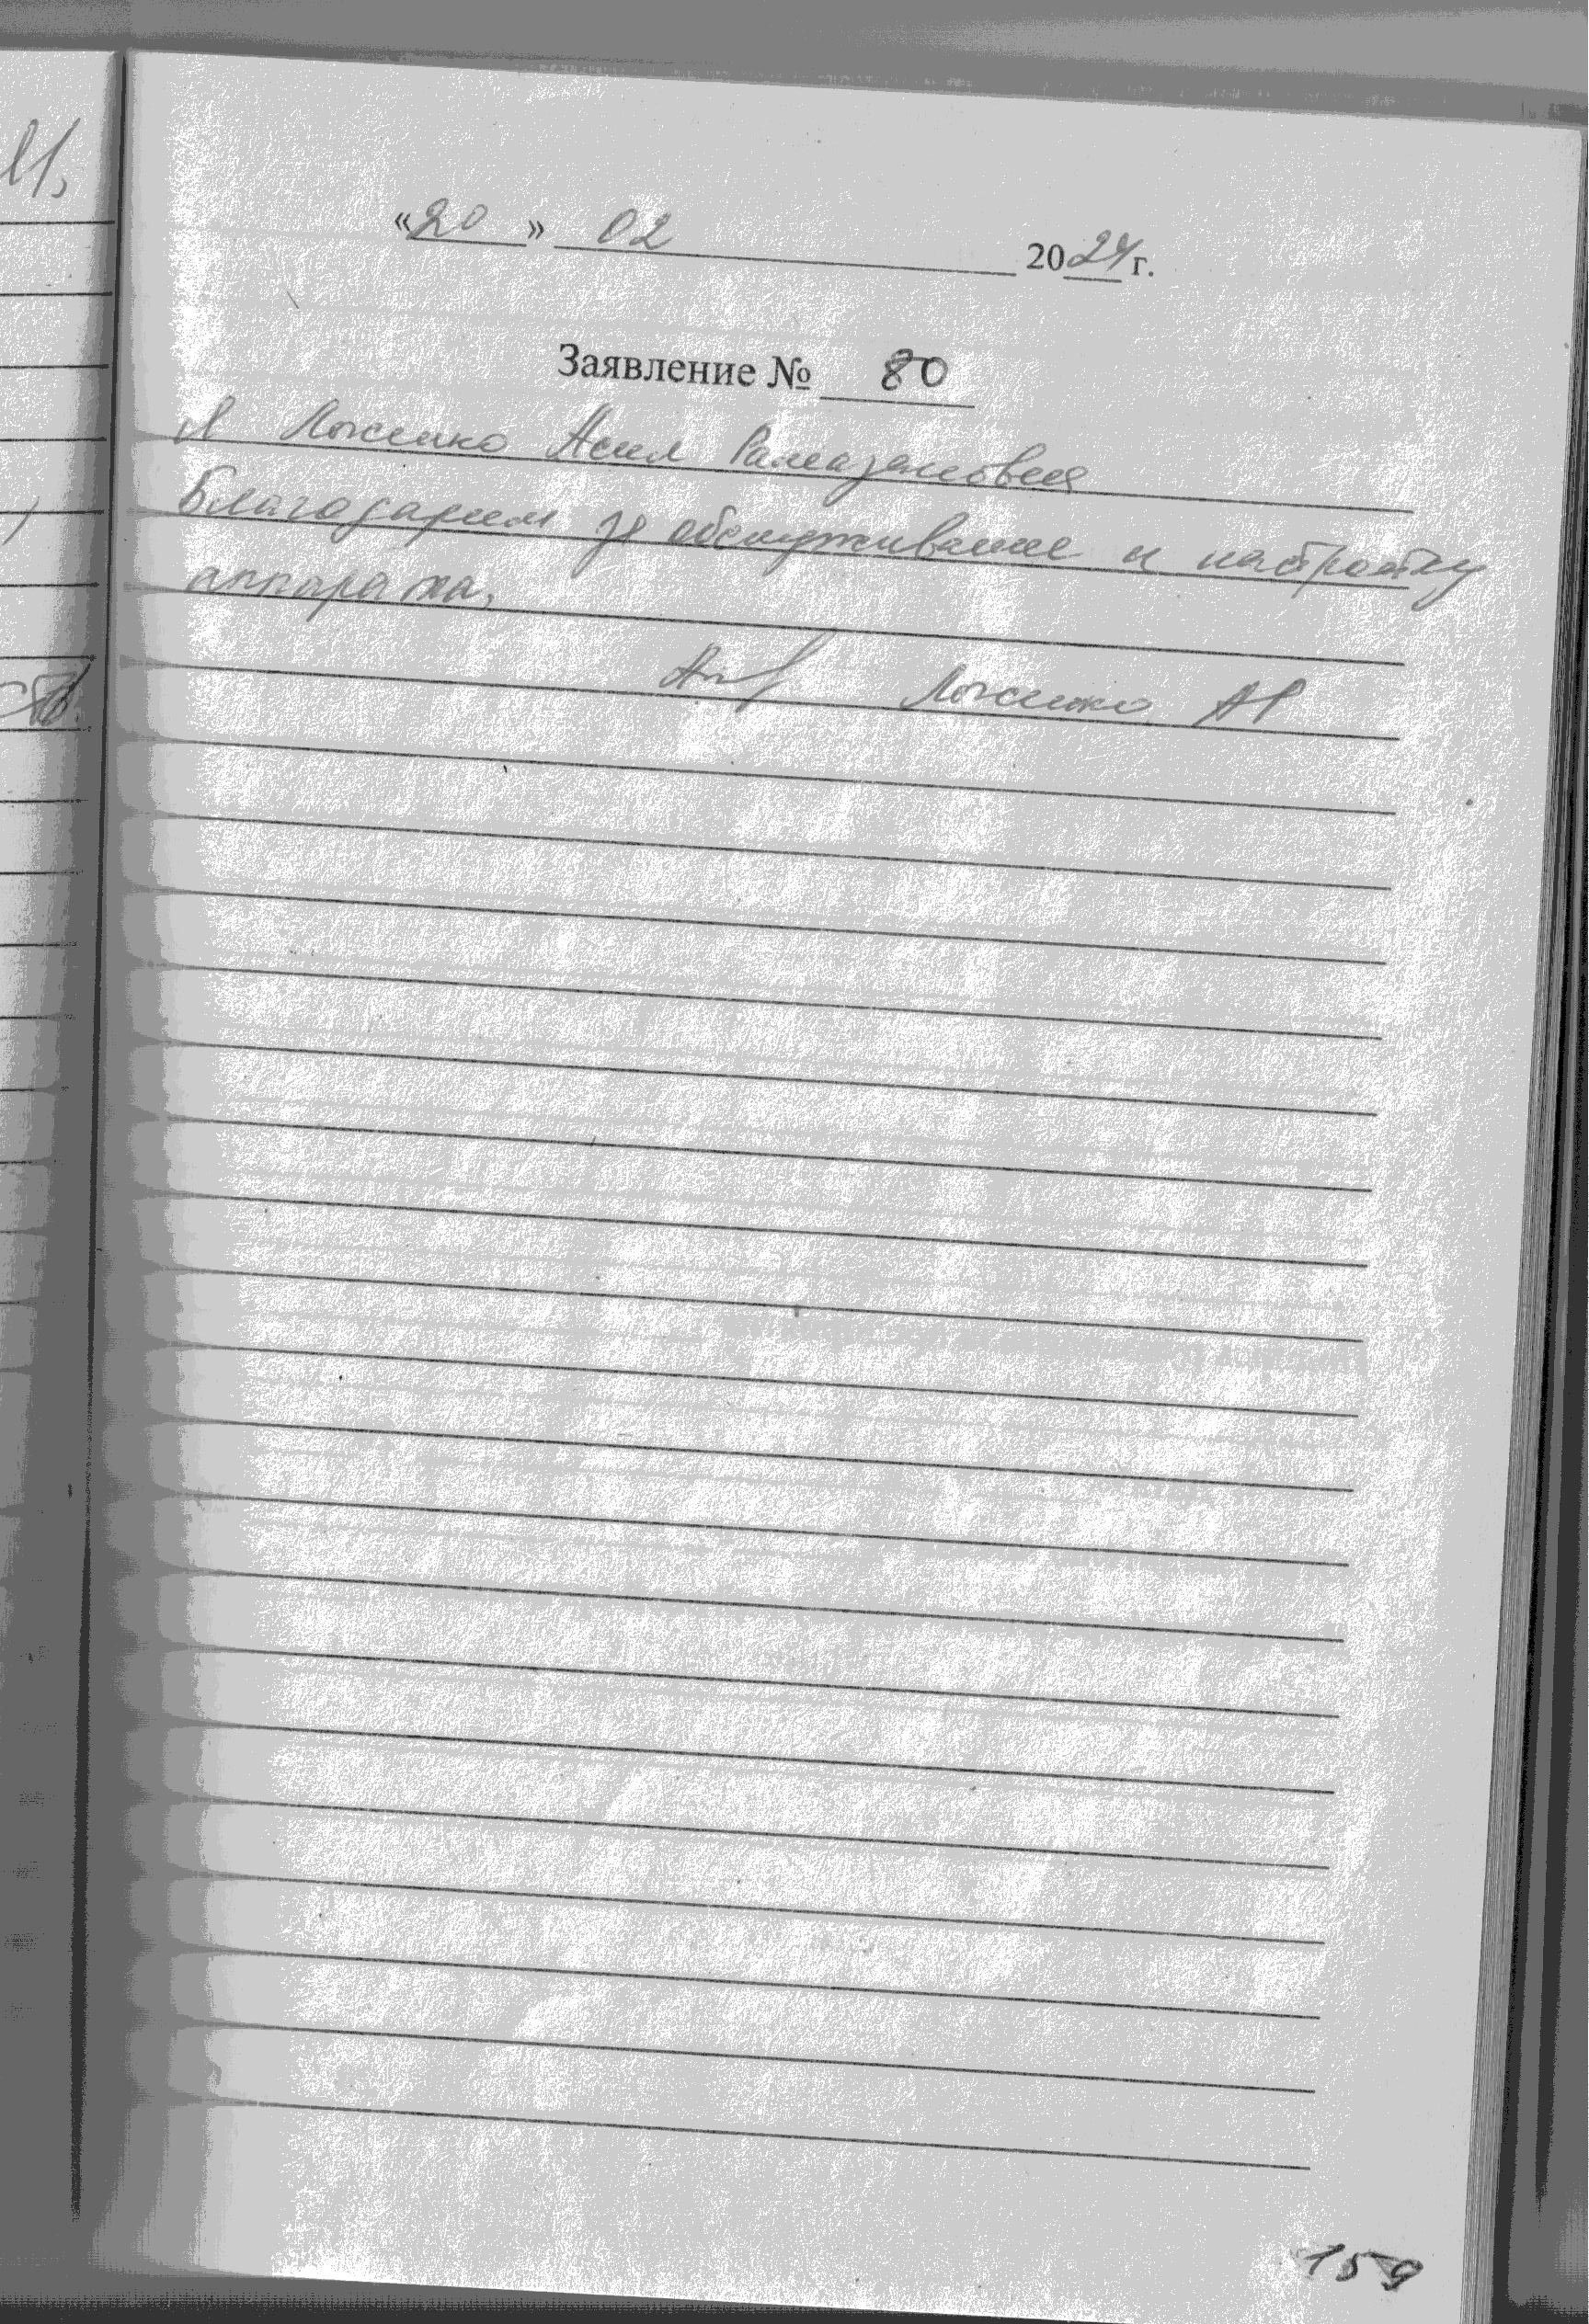 «20» 02 2024 г.
Заявление № 80
Я Асил Рамазановна
Благодарим за обслуживание и настройку
аппарата.
АР
159